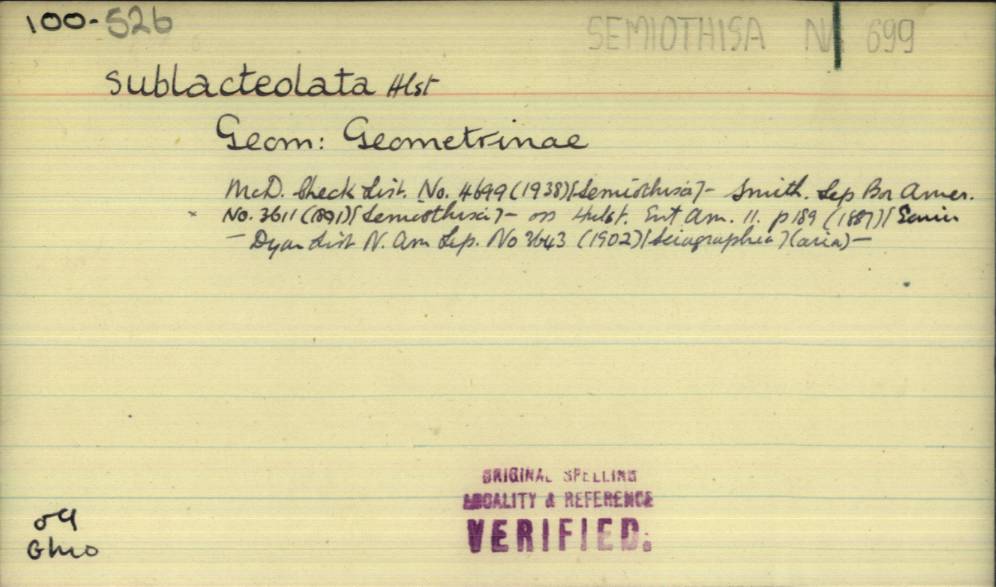 100-526
SEMIOTHISA N 699
sublacteolata Hlst
Geom: Geometrinae
McD. Check List. No. 4699 (1938)[Semiothisa]- Smith. Lep Bor Amer.
No. 3611 (1891)[Semiothisa]- Hulst. Ent Am. 11. p 189 (1887)[
- Dyar List N. Am Lep. No 3643 (1902)[Sciagraphia] -
ORIGINAL SPELLING
LOCALITY & REFERENCE
VERIFIED.